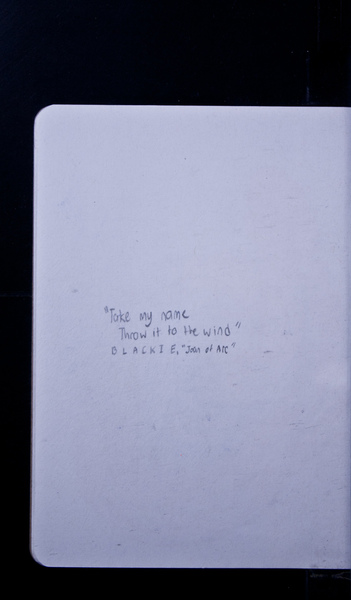 "Take my name
Throw it to the wind"
B L A C K I E, "Joan of Arc"